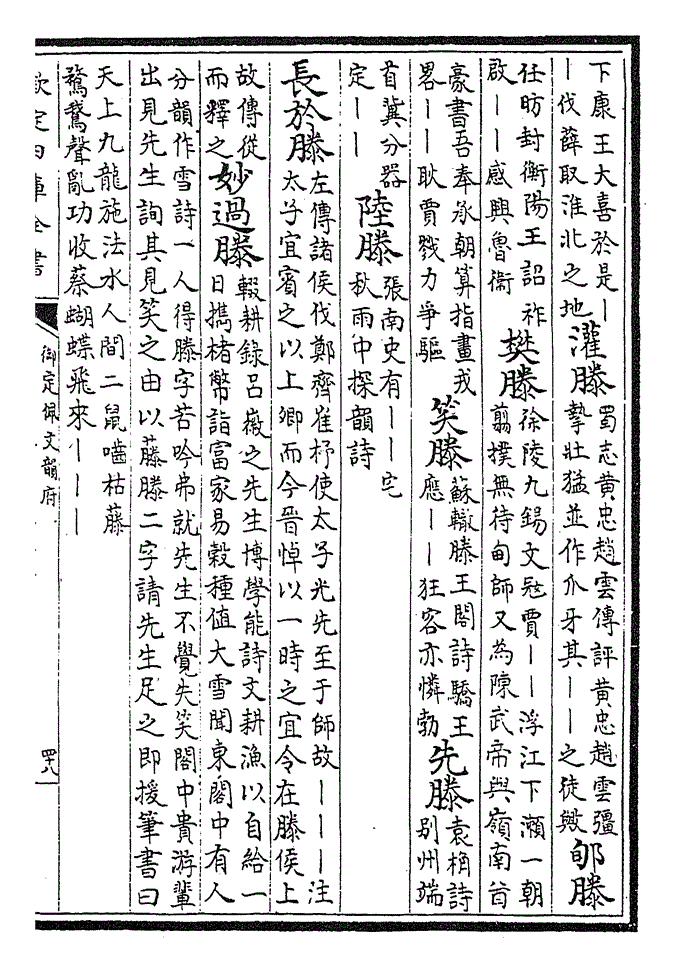 下康王大喜於是丨
丨伐薛取淮北之地
灌滕
蜀志黄忠趙雲傳評黄忠趙雲彊
摯壮猛並作爪牙其丨丨之徒歟
郇滕
任昉封衡陽王詔祚
啟丨丨感興魯衛
樊滕
徐陵九錫文冠賈丨丨浮江下瀬一朝
翦撲無待甸師又為陳武帝與嶺南酋
豪書吾奉承朝算指畫戎
畧丨丨耿賈戮力爭驅
笑滕
蘇轍滕王閣詩驕王
應丨丨狂客亦憐勃
先滕
袁桷詩
别州端
首冀分器
定丨丨
陸滕
張南史有丨丨宅
秋雨中探韻詩
長於滕
左傳諸侯伐鄭齊崔杼使太子光先至于師故丨丨丨注
太子宜賓之以上卿而今晉悼以一時之宜令在滕侯上
故傳從
而釋之
妙過滕
輟耕錄呂徽之先生博學能詩文耕漁以自給一
日攜楮幣詣富家易穀種值大雪聞東閣中有人
分韻作雪詩一人得滕字苦吟弗就先生不覺失笑閣中貴游輩
出見先生詢其見笑之由以藤滕二字請先生足之即援筆書曰
天上九龍施法水人間二鼠嚙枯藤
鶩鵞聲亂功收蔡蝴蝶飛來丨丨丨
欽定四庫全書
御定佩文韻府
四十八